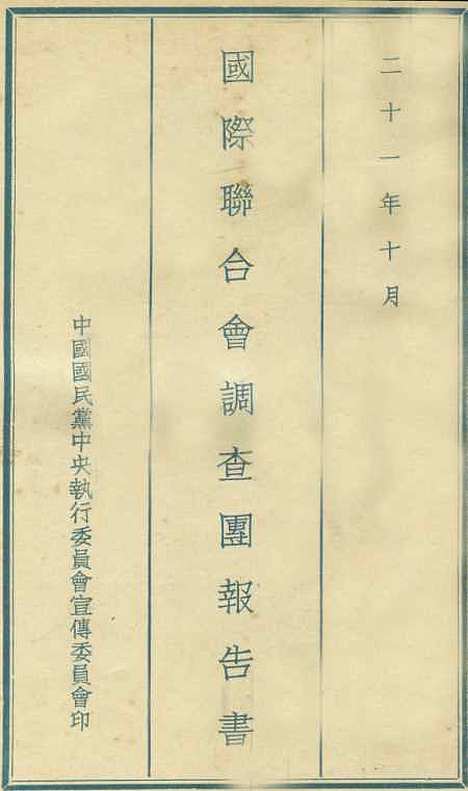 二十一年十月
國際聯合會調查團報告書
中國國民黨中央執行委員會宣傳委員會印